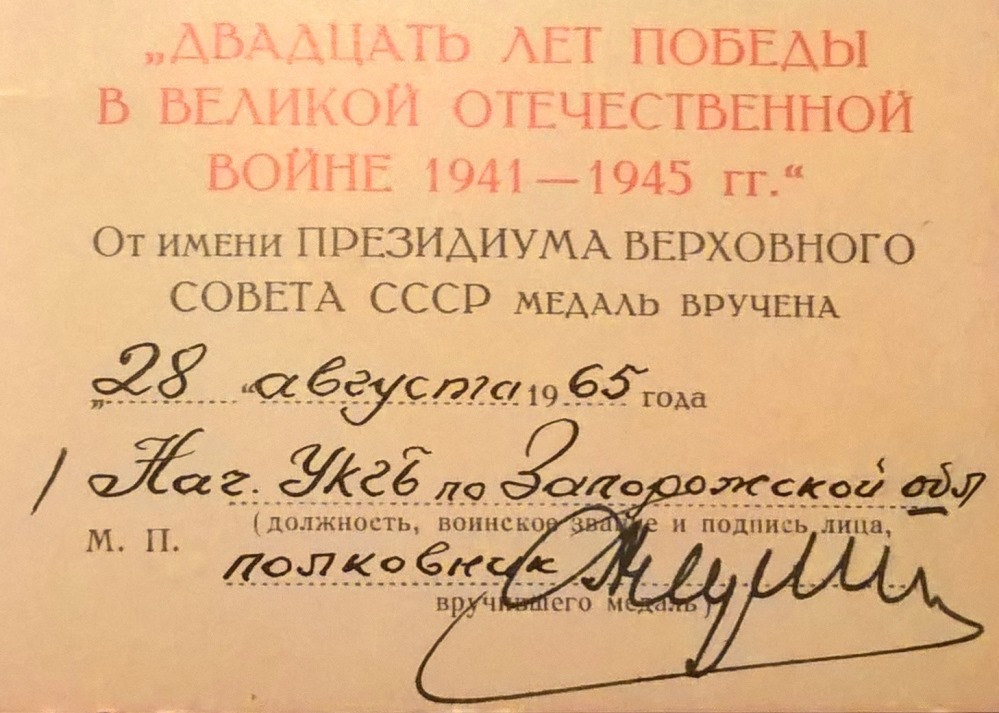 „ДВАДЦАТЬ ЛЕТ ПОБЕДЫ
В ВЕЛИКОЙ ОТЕЧЕСТВЕННОЙ
ВОЙНЕ 1941—1945 гг.“
От имени ПРЕЗИДИУМА ВЕРХОВНОГО
СОВЕТА СССР МЕДАЛЬ ВРУЧЕНА
„28“ августа 1965 года
Нач. УКГБ по Запорожской обл
М. П. (должность, воинское звание и подпись лица,
полковник
вручившего медаль)